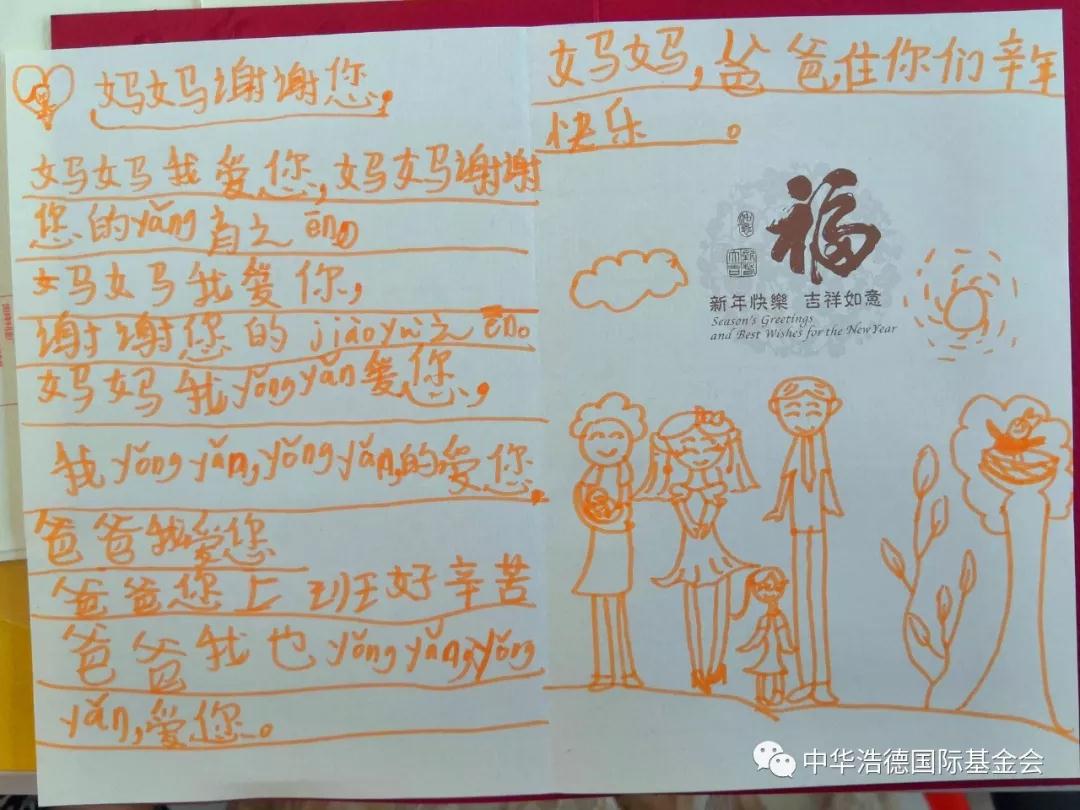 妈妈谢谢您,
妈妈我爱您,妈妈谢谢
您的yǎng育之ēn。
妈妈我爱你,
谢谢您的jiàoyù之ēn。
妈妈我yǒngyǎn爱您,
我yǒngyǎn,yǒngyǎn,的爱您,
爸爸我爱您
爸爸您上班好辛苦
爸爸我也yǒngyǎn,yǒng
yǎn,爱您。
妈妈,爸爸,住你们辛年
快乐。
福
新年快樂 吉祥如意
Season's Greetings
and Best Wishes for the New Year
中华浩德国际基金会